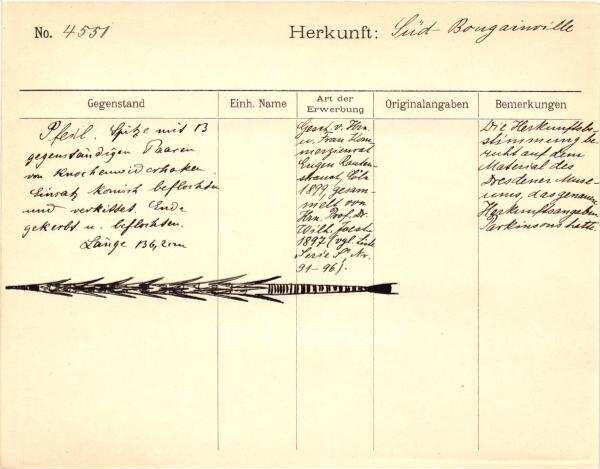 No. 4551
Herkunft: Süd-Bougainville
Gegenstand
Einh. Name
Art der
Erwerbung
Originalangaben
Bemerkungen
Pfeil. Spitze mit 13
gegenständigen Paaren
von Knochenwiderhaken.
Einsatz konisch beflochten
und verkittet. Ende
gekerbt u. beflochten.
Länge 136,2 cm
Gesch. v. Hrn.
u. Frau Kom-
merzienrat
Eugen Rauten-
strauch, Cöln
1899, gesam-
melt von
Hrn. Prof. Dr.
Wilh. Joest
1897 (vgl.
Serie Nr.
91-96).
Die Herkunftsbe-
stimmung be-
ruht auf dem
Material des
Dresdener Muse-
ums, das genaue
Herkunftsangaben
Parkinsons hatte.